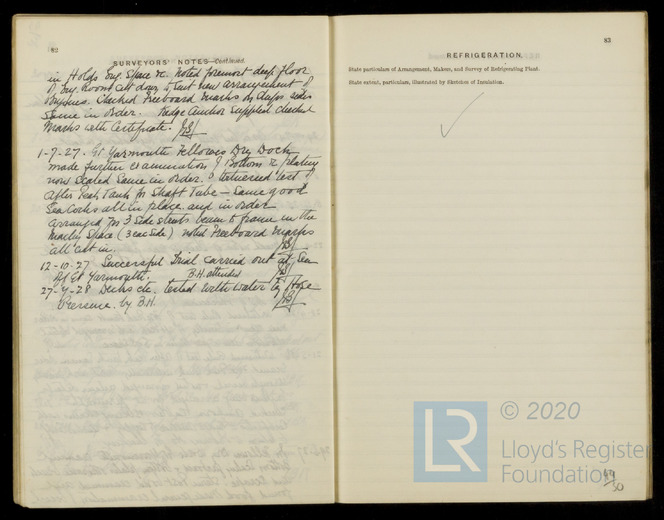 82
SURVEYORS' NOTES—Continued.
in Holds Eng. Space &c. Noted foremost deep floor
of Eng. Room cut down to suit new arrangement of
Engines. Checked Freeboard marks on ships sides
Same in order. Kedge Anchor Supplied checked
Marks with Certificate.
1-7-27. Gt Yarmouth Fellowes Dry Dock
made further examination of Bottom &
now Sealed Same in order. Witnessed test of
After Peak Tank for Shaft Tube — Same good
Sea Cocks all in place and in order
arranged for 3 Side struts beam to frame in the
Machy Space (3 ea Side) noted Freeboard marks
all cut in.
12-10-27 Successful Trial carried out at Sea
Gt Yarmouth. B.H. attended
27-4-28 Decks etc. tested with water by Hose
Pressure. by B.H.
83
REFRIGERATION.
State particulars of Arrangement, Makers, and Survey of Refrigerating Plant.
State extent, particulars, illustrated by Sketches of Insulation.
LR
© 2020
Lloyd's Register
Foundation
50